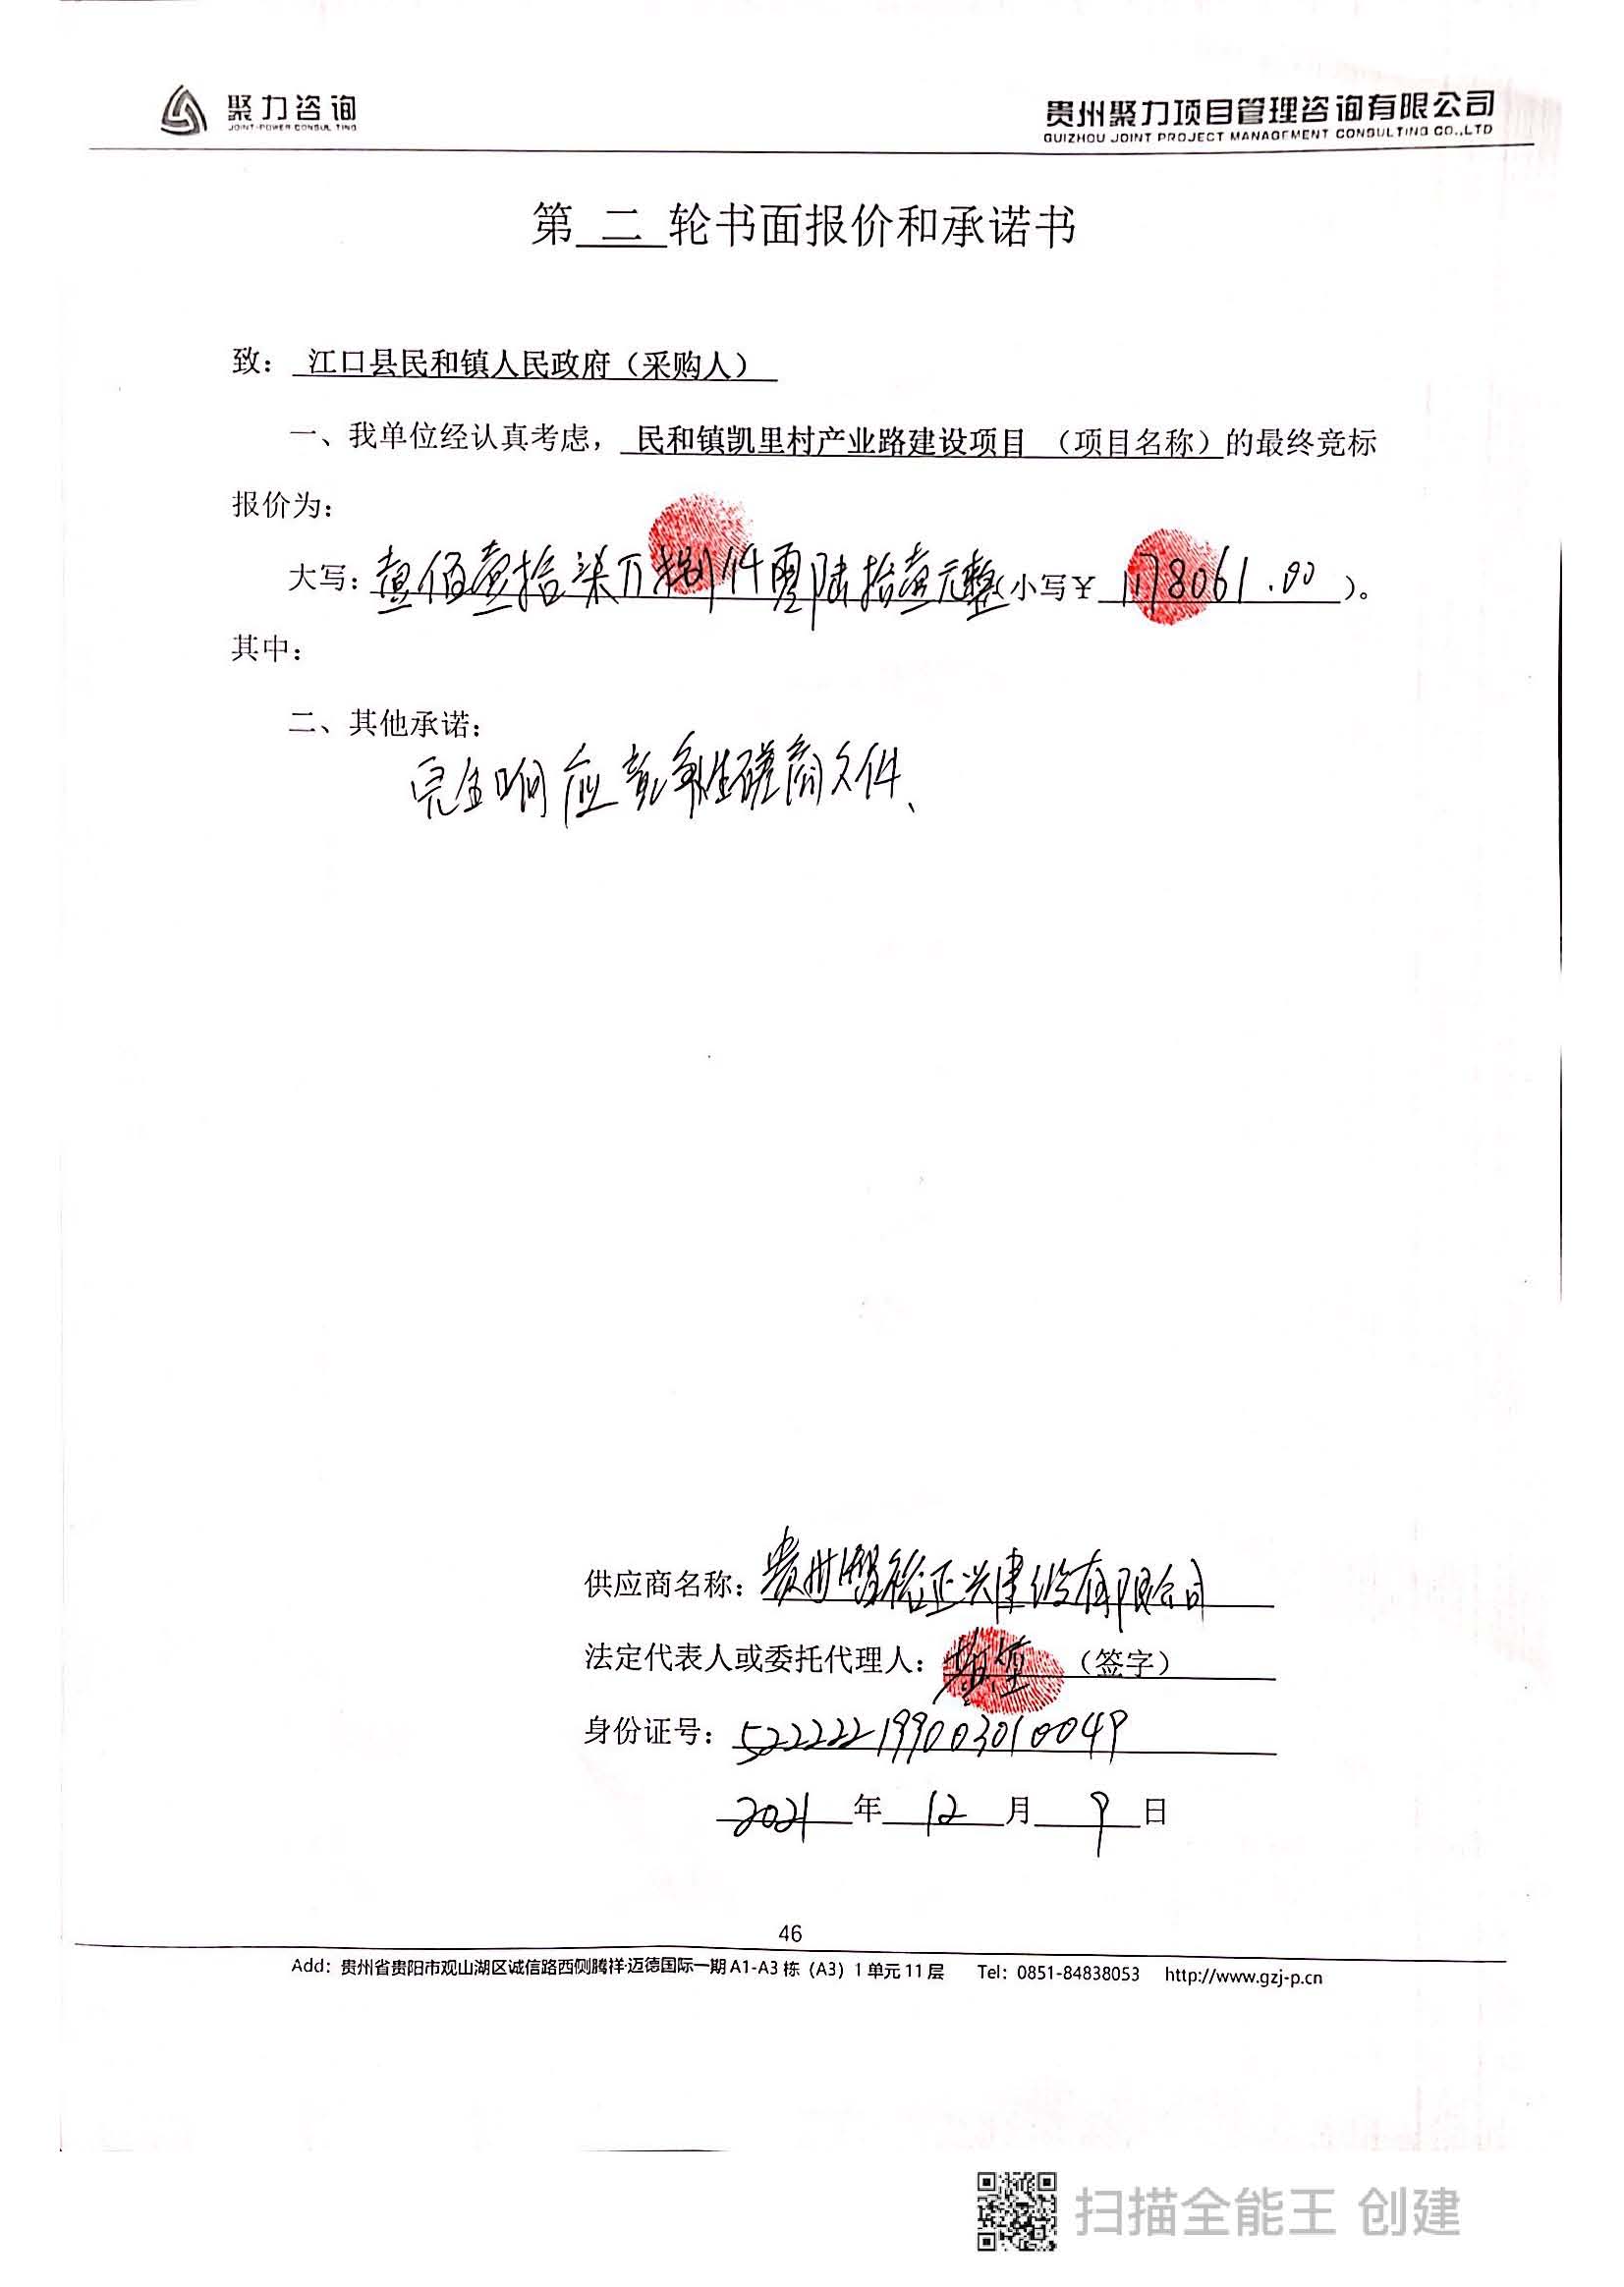 聚力咨询
JOINT-POWER CONSULTING
贵州聚力项目管理咨询有限公司
GUIZHOU JOINT PROJECT MANAGEMENT CONSULTING CO.,LTD
第 二 轮书面报价和承诺书
致： 江口县民和镇人民政府（采购人）
一、我单位经认真考虑， 民和镇凯里村产业路建设项目 （项目名称）的最终竞标
报价为：
大写：壹佰壹拾柒万捌仟零陆拾壹元整（小写￥ 1178061.00 ）。
其中：
二、其他承诺：
完全响应竞争性磋商文件、
供应商名称：贵州 裕正兴建设有限公司
法定代表人或委托代理人： （签字）
身份证号：522222199003010049
2021 年 12 月 9 日
46
Add：贵州省贵阳市观山湖区诚信路西侧腾祥·迈德国际一期 A1-A3 栋（A3）1 单元 11 层 Tel：0851-84838053 http://www.gzj-p.cn
扫描全能王 创建